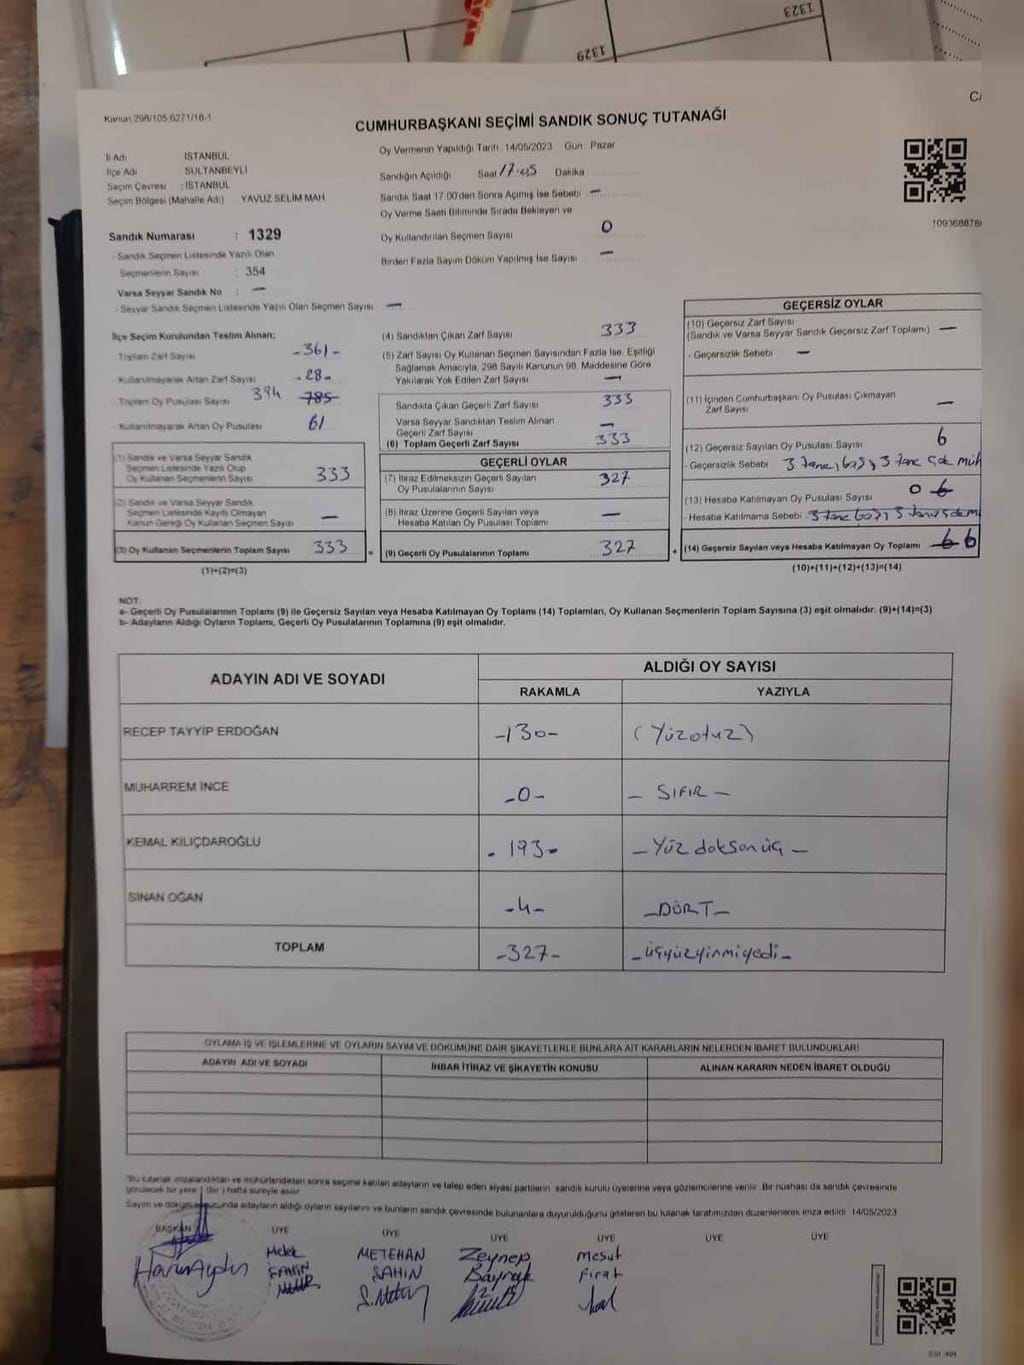 1323
1329
Kanun 298/105,6271/18-1
CUMHURBAŞKANI SEÇİMİ SANDIK SONUÇ TUTANAĞI
Oy Vermenin Yapıldığı Tarih 14/05/2023 Gün Pazar
İl Adı İSTANBUL
İlçe Adı SULTANBEYLİ
Seçim Çevresi : İSTANBUL
Seçim Bölgesi (Mahalle Adı) YAVUZ SELİM MAH.
Sandığın Açıldığı Saat 17.45 Dakika
Sandık Saat 17:00'den Sonra Açımış İse Sebebi —
Oy Verme Saati Bitiminde Sırada Bekleyen ve
Oy Kullandırılan Seçmen Sayısı 0
Birden Fazla Sayım Döküm Yapılmış İse Sayısı —
109368878
Sandık Numarası : 1329
Sandık Seçmen Listesinde Yazılı Olan
Seçmenlerin Sayısı : 354
Varsa Seyyar Sandık No : —
Seyyar Sandık Seçmen Listesinde Yazılı Olan Seçmen Sayısı —
İlçe Seçim Kurulundan Teslim Alınan;
Toplam Zarf Sayısı -361-
Kullanılmayarak Artan Zarf Sayısı -28-
Toplam Oy Pusulası Sayısı 394 785
Kullanılmayarak Artan Oy Pusulası 61
(1) Sandık ve Varsa Seyyar Sandık
Seçmen Listesinde Yazılı Olup
Oy Kullanan Seçmenlerin Sayısı 333
(2) Sandık ve Varsa Seyyar Sandık
Seçmen Listesinde Kayıtlı Olmayan
Kanun Gereği Oy Kullanan Seçmen Sayısı —
(3) Oy Kullanan Seçmenlerin Toplam Sayısı 333 =
(1)+(2)=(3)
(4) Sandıktan Çıkan Zarf Sayısı 333
(5) Zarf Sayısı Oy Kullanan Seçmen Sayısından Fazla İse, Eşitliği
Sağlamak Amacıyla, 298 Sayılı Kanunun 98. Maddesine Göre
Yakılarak Yok Edilen Zarf Sayısı —
Sandıkta Çıkan Geçerli Zarf Sayısı 333
Varsa Seyyar Sandıktan Teslim Alınan
Geçerli Zarf Sayısı —
(6) Toplam Geçerli Zarf Sayısı 333
GEÇERLİ OYLAR
(7) İtiraz Edilmeksizin Geçerli Sayılan
Oy Pusulalarının Sayısı 327
(8) İtiraz Üzerine Geçerli Sayılan veya
Hesaba Katılan Oy Pusulası Toplamı —
(9) Geçerli Oy Pusulalarının Toplamı 327 +
GEÇERSİZ OYLAR
(10) Geçersiz Zarf Sayısı
(Sandık ve Varsa Seyyar Sandık Geçersiz Zarf Toplamı) —
- Geçersizlik Sebebi —
(11) İçinden Cumhurbaşkanı Oy Pusulası Çıkmayan
Zarf Sayısı —
(12) Geçersiz Sayılan Oy Pusulası Sayısı 6
- Geçersizlik Sebebi 3 tane boş, 3 tane çok müh
(13) Hesaba Katılmayan Oy Pusulası Sayısı 0 6
- Hesaba Katılmama Sebebi 3 tane boş, 3
(14) Geçersiz Sayılan veya Hesaba Katılmayan Oy Toplamı 6 6
(10)+(11)+(12)+(13)=(14)
NOT:
a- Geçerli Oy Pusulalarının Toplamı (9) ile Geçersiz Sayılan veya Hesaba Katılmayan Oy Toplamı (14) Toplamları, Oy Kullanan Seçmenlerin Toplam Sayısına (3) eşit olmalıdır. (9)+(14)=(3)
b- Adayların Aldığı Oyların Toplamı, Geçerli Oy Pusulalarının Toplamına (9) eşit olmalıdır.
ADAYIN ADI VE SOYADI
ALDIĞI OY SAYISI
RAKAMLA YAZIYLA
RECEP TAYYİP ERDOĞAN -130- (Yüzotuz)
MUHARREM İNCE -0- - SIFIR -
KEMAL KILIÇDAROĞLU - 193- - Yüz doksonüç -
SİNAN OĞAN -4- -DÖRT-
TOPLAM -327- -üçyüzyirmiyedi-
OYLAMA İŞ VE İŞLEMLERİNE VE OYLARIN SAYIM VE DÖKÜMÜNE DAİR ŞİKAYETLERLE BUNLARA AİT KARARLARIN NELERDEN İBARET BULUNDUKLARI
ADAYIN ADI VE SOYADI İHBAR İTİRAZ VE ŞİKAYETİN KONUSU ALINAN KARARIN NEDEN İBARET OLDUĞU
"Bu tutanak imzalandıktan ve mühürlendikten sonra seçime katılan adayların ve talep eden siyasi partilerin sandık kurulu üyelerine veya gözlemcilerine verilir. Bir nüshası da sandık çevresinde
görülecek bir yere 1 (bir) hafta süreyle asılır
Sayım ve döküm sonucunda adayların aldığı oyların sayılarını ve bunların sandık çevresinde bulunanlara duyurulduğunu gösteren bu tutanak tarafımızdan düzenlenerek imza edildi 14/05/2023
BAŞKAN ÜYE ÜYE ÜYE ÜYE ÜYE ÜYE
Harun Aydın
Melek ŞAHİN
METEHAN ŞAHİN
Zeynep Bayrak
Mesut Fırat